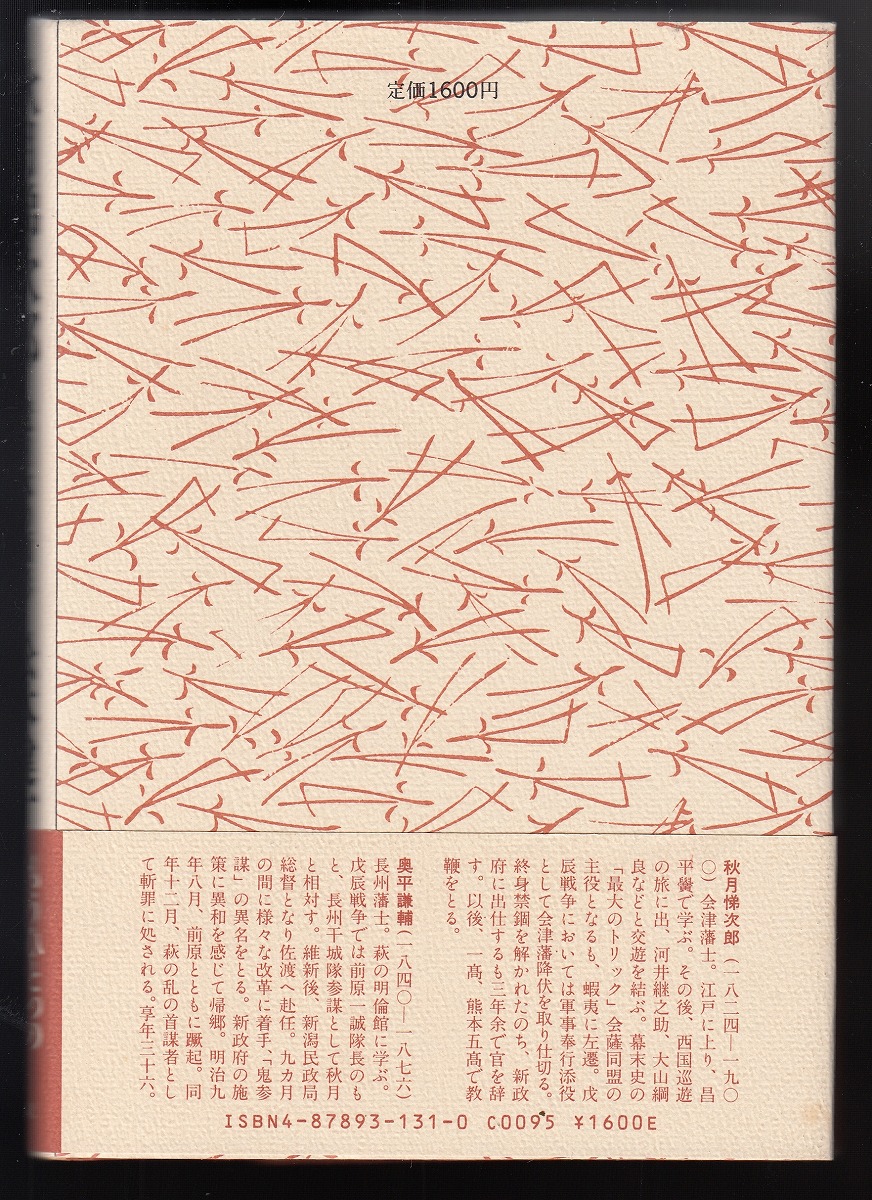 定価1600円
秋月悌次郎(一八二四―一九〇
〇)会津藩士。江戸に上り、昌
平黌で学ぶ。その後、西国巡遊
の旅に出、河井継之助、大山綱
良などと交遊を結ぶ。幕末史の
「最大のトリック」会薩同盟の
主役となるも、蝦夷に左遷。戊
辰戦争においては軍事奉行添役
として会津藩降伏を取り仕切る。
終身禁錮を解かれたのち、新政
府に出仕するも三年余で官を辞
す。以後、一髙、熊本五髙で教
鞭をとる。
奥平謙輔(一八四〇―一八七六)
長州藩士。萩の明倫館に学ぶ。
戊辰戦争では前原一誠隊長のも
と、長州干城隊参謀として秋月
と相対す。維新後、新潟民政局
総督となり佐渡へ赴任。九カ月
の間に様々な改革に着手、「鬼参
謀」の異名をとる。新政府の施
策に異和を感じて帰郷。明治九
年八月、前原とともに蹶起。同
年十二月、萩の乱の首謀者とし
て斬罪に処される。享年三十六。
ISBN4-87893-131-0 C0095 ¥1600E